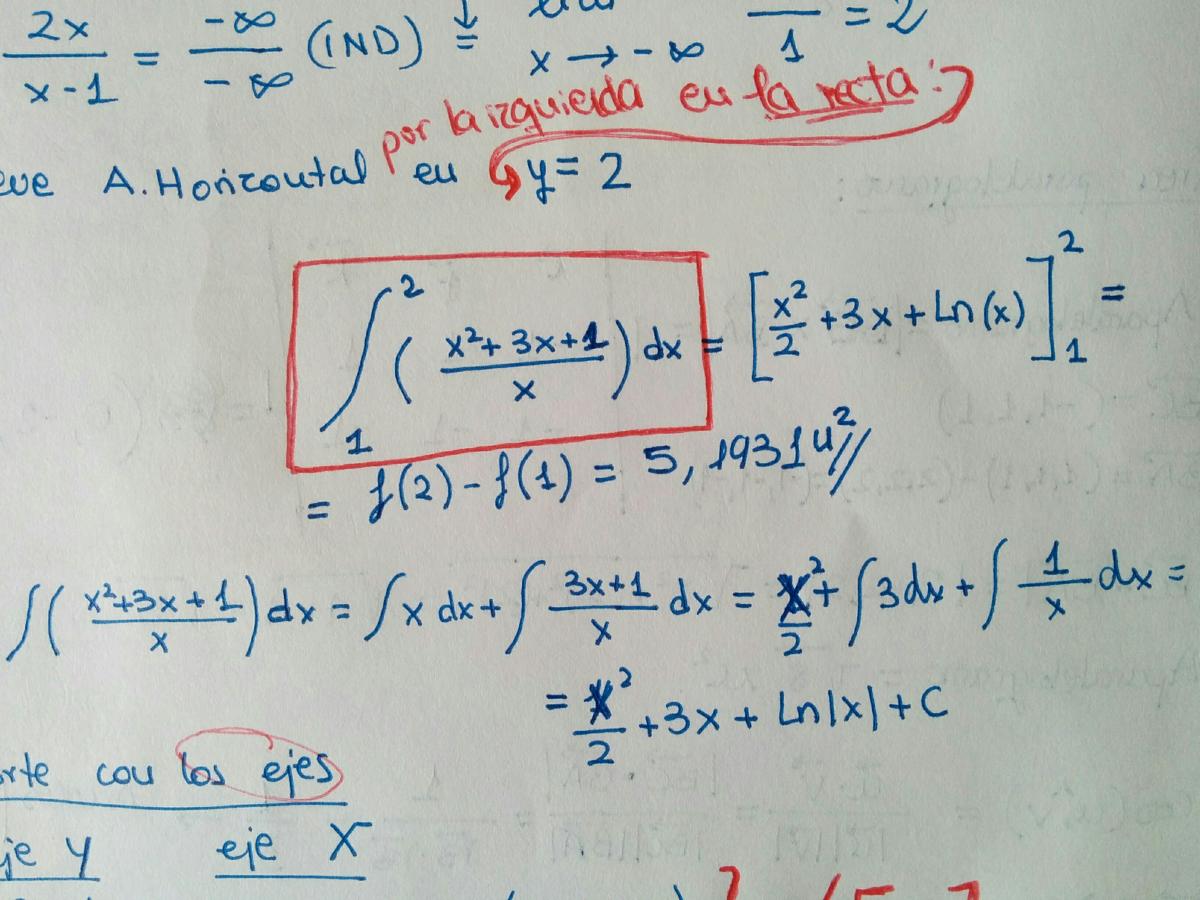 2x/x-1 = -∞/-∞ (IND) = x→-∞ /1 = 2
por la izquierda en la recta:
A. Horizontal en y = 2
∫₁² (x²+3x+1/x) dx = [x²/2 + 3x + Ln(x)]₁² =
= f(2) - f(1) = 5,1931 u²//
∫(x²+3x+1/x) dx = ∫x dx + ∫ 3x+1/x dx = x²/2 + ∫3dx + ∫ 1/x dx =
= x²/2 + 3x + Ln|x| + C
con los ejes
eje X